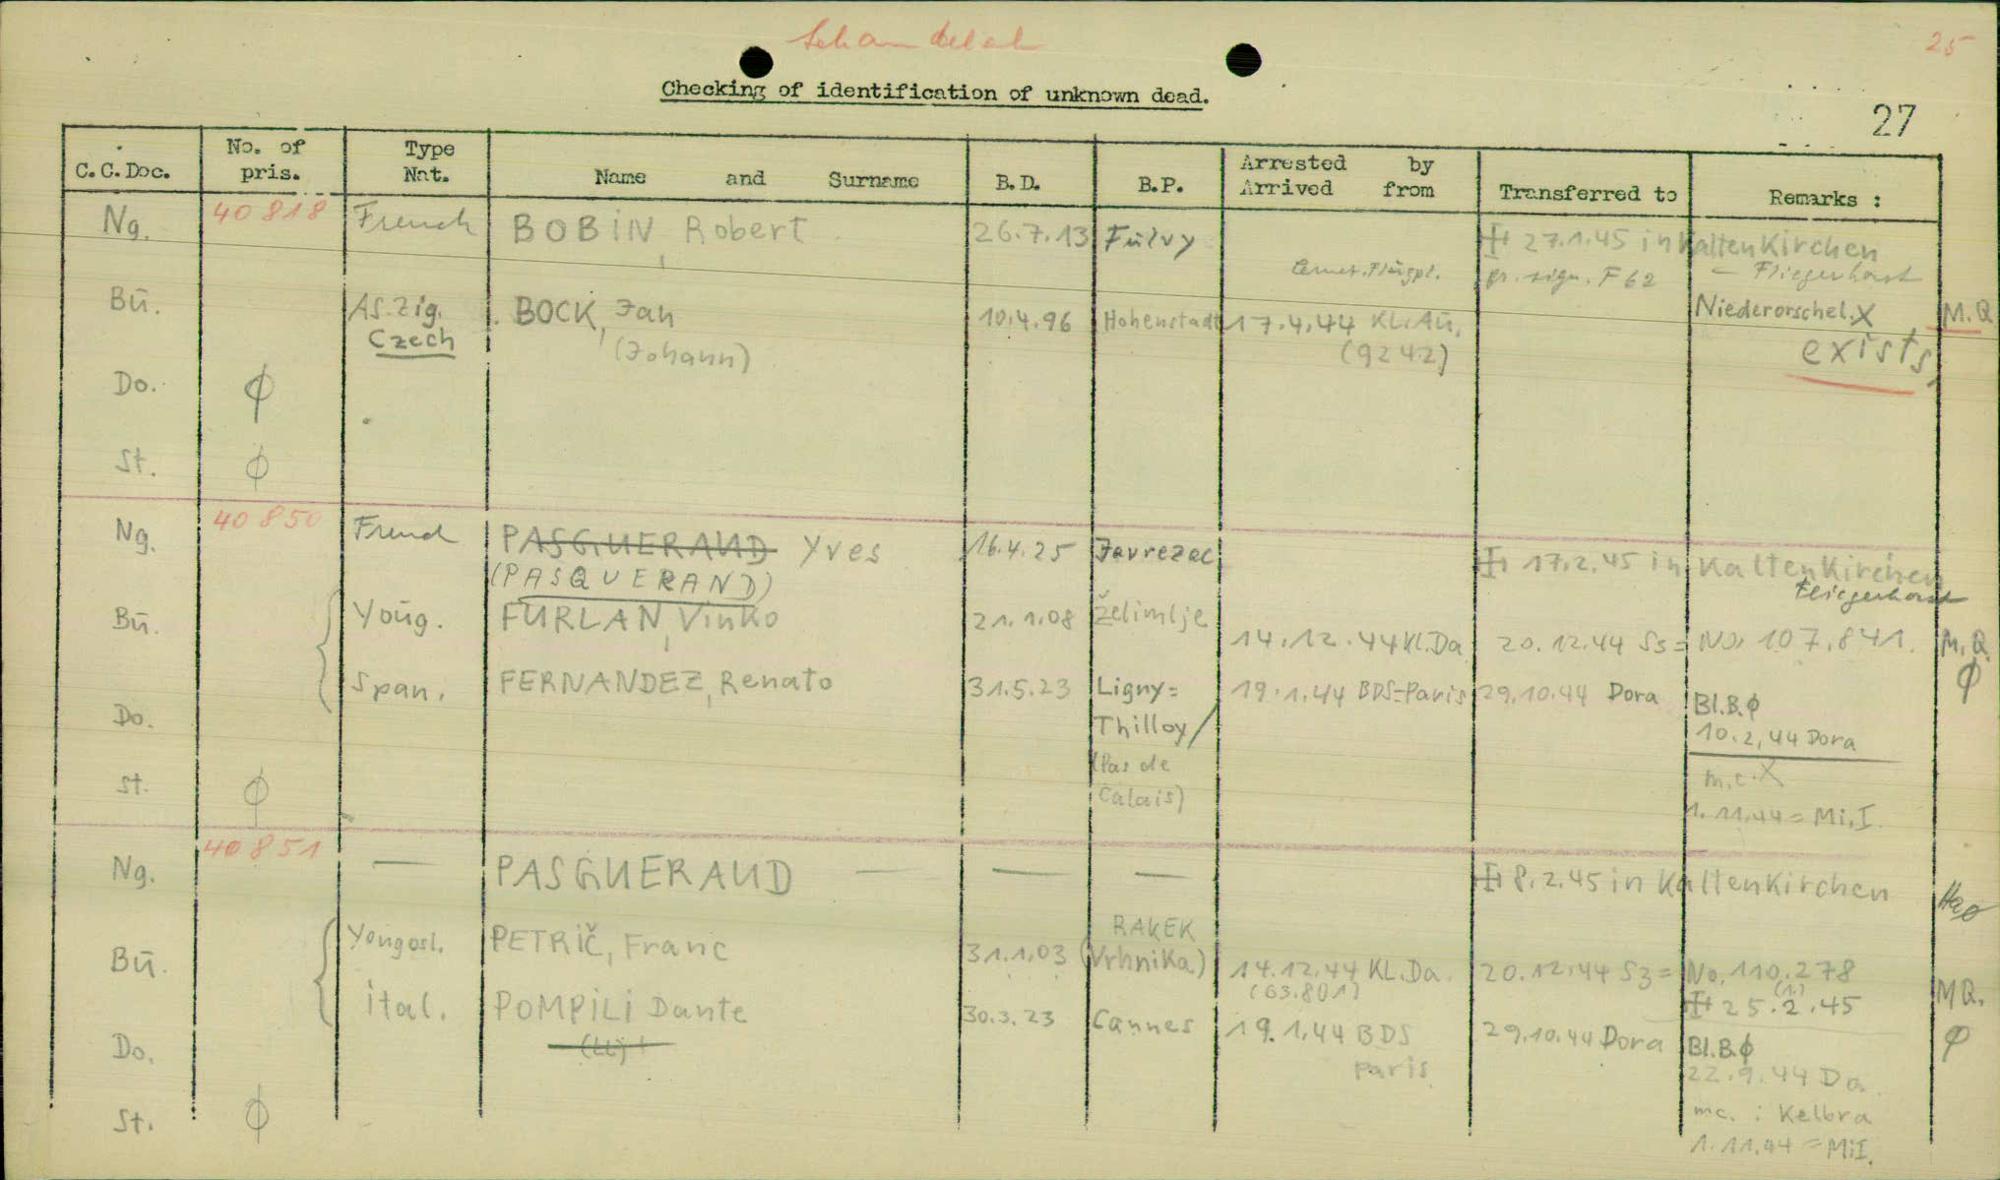 25
Checking of identification of unknown dead.
27
C.C.Doc. No. of pris. Type Nat. Name and Surname B.D. B.P. Arrested by Arrived from Transferred to Remarks :
Ng. 40818 French BOBIN, Robert 26.7.13 Fulvy 27.1.45 in Kaltenkirchen
F 62 - Fliegerhorst
Bū. As. Zig. BOCK, Jan 10.4.96 Hohenstadt 17.4.44 KL.Aū. Niederorschel. X M.Q
Czech (Johann) (9242) exists
Do. ϕ
St. ϕ
Ng. 40850 French PASGUERAUD Yves 16.4.25 Javrezac 17.2.45 in Kaltenkirchen
(PASQUERAND) Fliegerhorst
Bū. Yoūg. FURLAN, Vinko 21.1.08 Želimlje 14.12.44 Kl.Da 20.12.44 S3 = No. 107.841. M.Q.
Span. FERNANDEZ, Renato 31.5.23 Ligny= 19.1.44 BDS-Paris 29.10.44 Dora Bl.B.ϕ ϕ
Do. Thilloy/ 10.2.44 Dora
(Pas de m.c. X
St. ϕ Calais) 1.11.44 = Mi.I.
Ng. 40851 — PASGUERAUD — — — 8.2.45 in Kaltenkirchen
RAKEK
Bū. Yougosl. PETRIČ, Franc 31.1.03 (Vrhnika) 14.12.44 KL.Da. 20.12.44 S3 = No. 110.278
(63.801) 25.2.45 MQ.
ital. POMPiLi Dante 30.3.23 Cannes 19.1.44 BDS 29.10.44 Dora Bl.B.ϕ ϕ
Do. Paris 22.9.44 Da.
mc. : Kelbra
St. ϕ 1.11.44 = MiI.